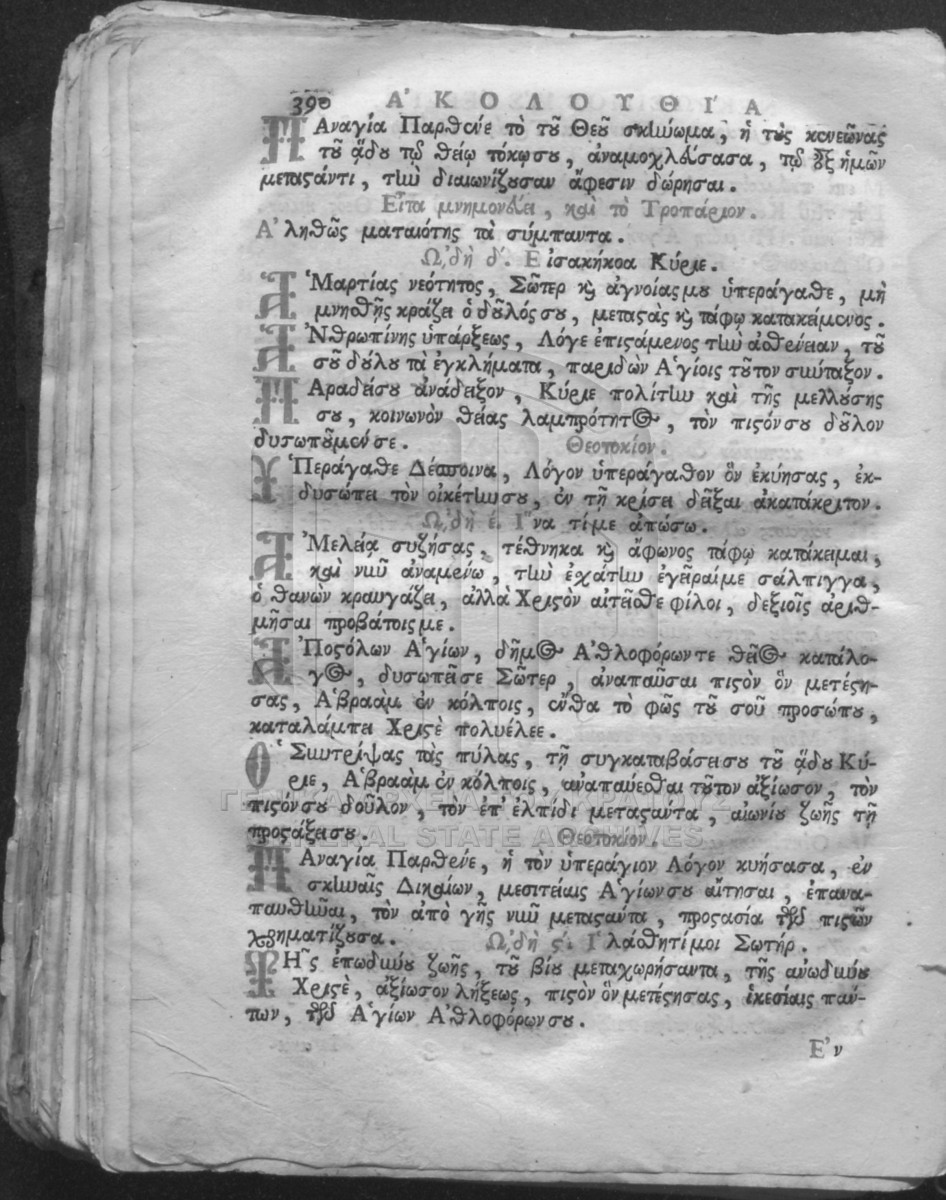 390 Α᾿ Κ Ο Λ Ο Υ Θ Ι΄ Α
ΠΑναγία Παρθένε τὸ τοῦ Θεοῦ σκήνωμα, ἡ τοὺς κευεῶνας
τοῦ ᾅδου τῷ θείῳ τόκῳσου, ἀναμοχλεύσασα, τῷ ἐξ ἡμῶν
μεταστάντι, τὴν διαιωνίζουσαν ἄφεσιν δώρησαι.
Εἶτα μνημονεύει, καὶ τὸ Τροπάριον.
Α᾿ληθῶς ματαιότης τὰ σύμπαντα.
Ω᾿δὴ δ΄. Εἰσακήκοα Κύριε.
Α῾Μαρτίας νεότητος, Σῶτερ καὶ ἀγνοίαςμου ὑπεράγαθε, μὴ
μνησθῇς κράζει ὁ δοῦλόςσου, μεταστὰς καὶ τάφῳ κατακείμενος.
Α᾿Νθρωπίνης ὑπάρξεως, Λόγε ἐπιστάμενος τὴν ἀσθένειαν, τοῦ
σοῦ δούλου τὰ ἐγκλήματα, παριδὼν Α῾γίοις τοῦτον σύνταξον.
ΠΑραδείσου ἀνάδειξον, Κύριε πολίτην καὶ τῆς μελλούσης
σου, κοινωνὸν θείας λαμπρότητος, τὸν πιστόνσου δοῦλον
δυσωποῦμένσε. Θεοτοκίον.
Υ῾Περάγαθε Δέσποινα, Λόγον ὑπεράγαθον ὃν ἐκύησας, ἐκ-
δυσώπει τὸν οἰκέτηνσου, ἐν τῇ κρίσει δεῖξαι ἀκατάκριτον.
Ω᾿δὴ έ. Ι῞να τί με ἀπώσω.
Α᾿Μελείᾳ συζήσας, τέθνηκα καὶ ἄφωνος τάφῳ κατάκειμαι,
καὶ νῦν ἀναμένω, τὴν ἐσχάτην ἐγεῖραίμε σάλπιγγα,
ὁ θανὼν κραυγάζει, ἀλλὰ Χριστὸν αἰτεῖσθε φίλοι, δεξιοῖς ἀριθ-
μῆσαι προβάτοιςμε.
Α᾿Ποστόλων Α῾γίων, δῆμος Α᾿θλοφόρωντε θεῖος κατάλο-
γος, δυσωπεῖσε Σῶτερ, ἀναπαῦσαι πιστὸν ὃν μετέστη-
σας, Α῾βραὰμ ἐν κόλποις, ἔνθα τὸ φῶς τοῦ σοῦ προσώπου,
καταλάμπει Χριστὲ πολυέλεε.
Ο῾Συντρίψας τὰς πύλας, τῇ συγκαταβάσεισου τοῦ ᾅδου Κύ-
ριε, Α῾βραὰμ ἐν κόλποις, ἀναπαύεσθαι τοῦτον ἀξίωσον, τὸν
πιστόνσου δοῦλον, τὸν ἐπ᾿ ἐλπίδι μεταστάντα, αἰωνίου ζωῆς τῇ
προστάξεισου. Θεοτοκίον.
ΠΑναγία Παρθένε, ἡ τὸν ὑπεράγιον Λόγον κυήσασα, ἐν
σκηναῖς Δικαίων, μεσιτείαις Α῾γίωνσου αἴτησαι, ἐπανα-
παυθῆναι, τὸν ἀπὸ γῆς νῦν μεταστάντα, προστασία τῶν πιστῶν
χρηματίζουσα. Ω᾿δὴ ς΄. Ι῾λάσθητίμοι Σωτήρ.
ΤΗ῀ς ἐπωδύνου ζωῆς, τοῦ βίου μεταχωρήσαντα, τῆς ἀνωδύνου
Χριστὲ, ἀξίωσον λήξεως, πιστὸν ὃν μετέστησας, ἱκεσίαις πάν-
των, τῶν Α῾γίων Α᾿θλοφόρωνσου.
Ε᾿ν
ΓΕΝΙΚΑ ΑΡΧΕΙΑ ΤΟΥ ΚΡΑΤΟΥΣ
GENERAL STATE ARCHIVES